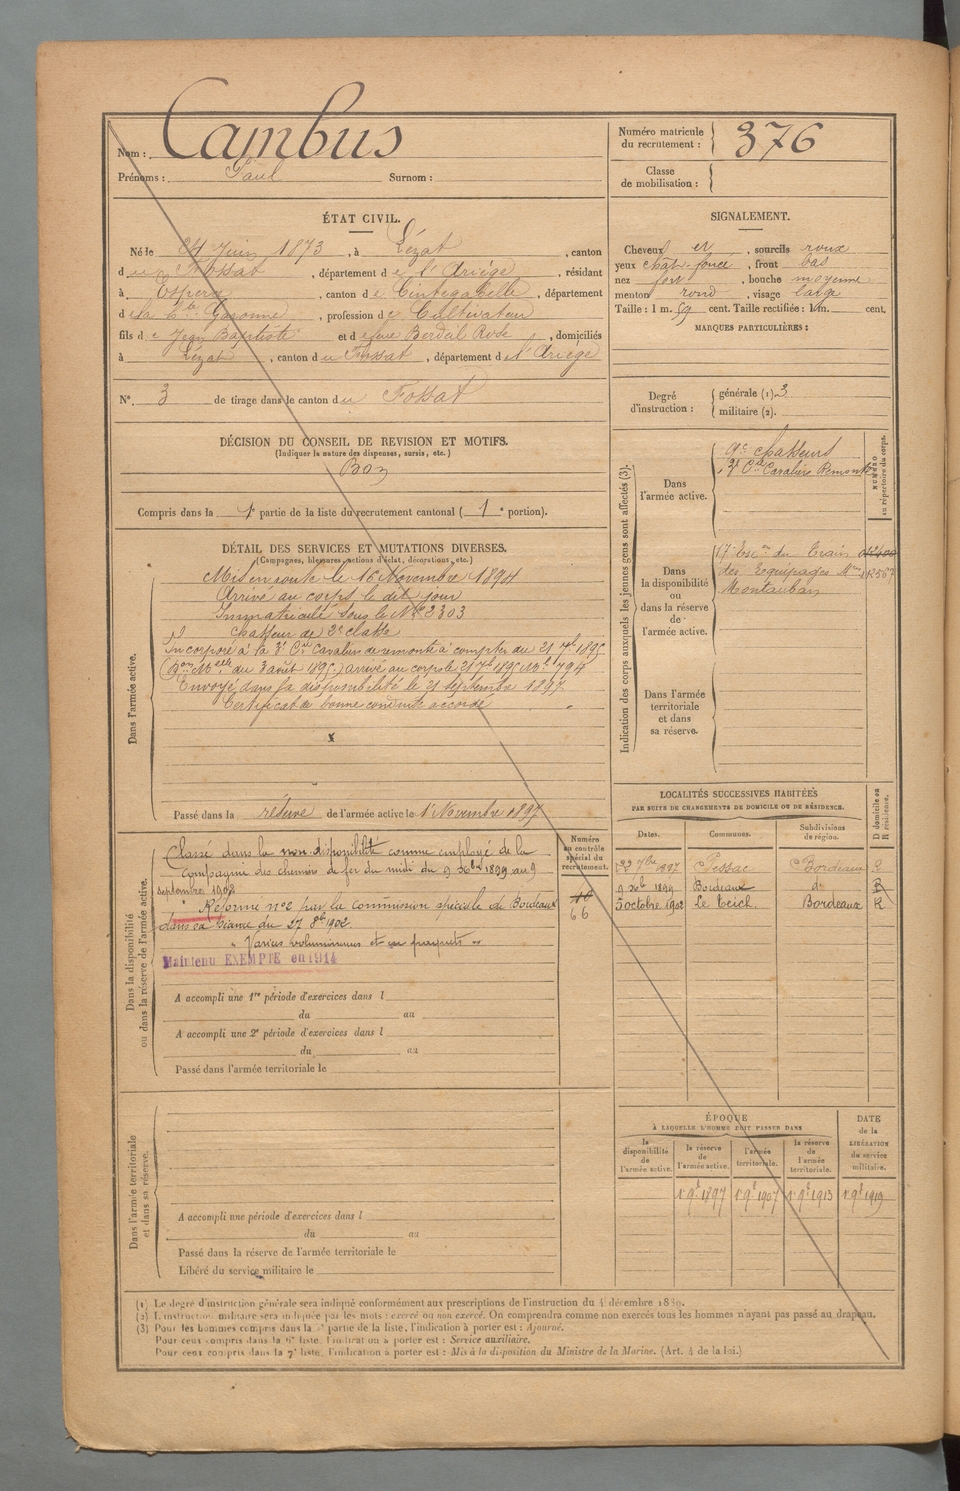 Nom : Cambus
Prénoms : Paul Surnom :
Numéro matricule du recrutement : 376
Classe de mobilisation :
ÉTAT CIVIL.
Né le 24 Juin 1873, à Lézat, canton
du Fossat, département de l'Ariége, résidant
à Espera, canton de Cintegabelle, département
de la Hte Garonne, profession de Cultivateur
fils de Jean Baptiste et de feue Berdal Rose, domiciliés
à Lézat, canton du Fossat, département de l'Ariége
N° 3 de tirage dans le canton du Fossat
SIGNALEMENT.
Cheveux et, sourcils roux
yeux chât. foncé, front bas
nez fort, bouche moyenne
menton rond, visage large
Taille : 1 m. 59 cent. Taille rectifiée : 1 m. cent.
MARQUES PARTICULIÈRES :
Degré d'instruction : générale (1). 3
militaire (2).
DÉCISION DU CONSEIL DE REVISION ET MOTIFS.
(Indiquer la nature des dispenses, sursis, etc.)
Bon
Compris dans la 1e partie de la liste du recrutement cantonal ( 1e portion).
DÉTAIL DES SERVICES ET MUTATIONS DIVERSES.
(Campagnes, blessures, actions d'éclat, décorations, etc.)
Dans l'armée active.
Mis en route le 16 Novembre 1894
Arrivé au corps le dit jour
Immatriculé sous le N° 2303
chasseur de 2e classe
Incorporé à la 3e Cie Cavaliers de remonte à compter du 21 7bre 1895
(Bon Melle du 3 août 1895) arrivé au corps le 21 7bre 1895 Mle 794
Envoyé dans la disponibilité le 21 septembre 1897
Certificat de bonne conduite accordé
x
Passé dans la réserve de l'armée active le 1 Novembre 1897
Indication des corps auxquels les jeunes gens sont affectés (3).
NUMÉRO au répertoire du corps.
Dans l'armée active.
9e chasseurs
3e Cie Cavaliers Remonte
Dans la disponibilité ou dans la réserve de l'armée active.
17e Escon du Train
des Equipages Mres
Montauban
Dans l'armée territoriale et dans sa réserve.
LOCALITÉS SUCCESSIVES HABITÉES
PAR SUITE DE CHANGEMENTS DE DOMICILE OU DE RÉSIDENCE.
Dates. Communes. Subdivisions de région. D domicile ou R résidence.
22 7bre 1897 Pessac Bordeaux R
9 Xbre 1899 Bordeaux do R
5 octobre 1902 Le Teich Bordeaux R
Dans la disponibilité ou dans la réserve de l'armée active.
Numéro au contrôle spécial du recrutement.
66
Classé dans la non-disponibilité comme employé de la
Compagnie des chemins de fer du midi du 9 Xbre 1899 au 9
septembre 1902
Réformé n°2 par la commission spéciale de Bordeaux
dans sa séance du 27 8bre 1902.
Maintenu EXEMPTÉ en 1914
A accompli une 1re période d'exercices dans l
du au
A accompli une 2e période d'exercices dans l
du au
Passé dans l'armée territoriale le
Dans l'armée territoriale et dans sa réserve.
A accompli une période d'exercices dans l
du au
Passé dans la réserve de l'armée territoriale le
Libéré du service militaire le
ÉPOQUE
À LAQUELLE L'HOMME DOIT PASSER DANS
DATE de la LIBÉRATION du service militaire.
la disponibilité de l'armée active. la réserve de l'armée active. l'armée territoriale. la réserve de l'armée territoriale.
1 9e 1897 1 9e 1907 1 9e 1913 1 9e 1919
(1) Le degré d'instruction générale sera indiqué conformément aux prescriptions de l'instruction du 4 décembre 1889.
(2) L'instruction militaire sera indiquée par les mots : exercé ou non exercé. On comprendra comme non exercés tous les hommes n'ayant pas passé au drapeau.
(3) Pour les hommes compris dans la 5e partie de la liste, l'indication à porter est : Ajourné.
Pour ceux compris dans la 6e liste, l'indication à porter est : Service auxiliaire.
Pour ceux compris dans la 7e liste, l'indication à porter est : Mis à la disposition du Ministre de la Marine. (Art. 4 de la loi.)